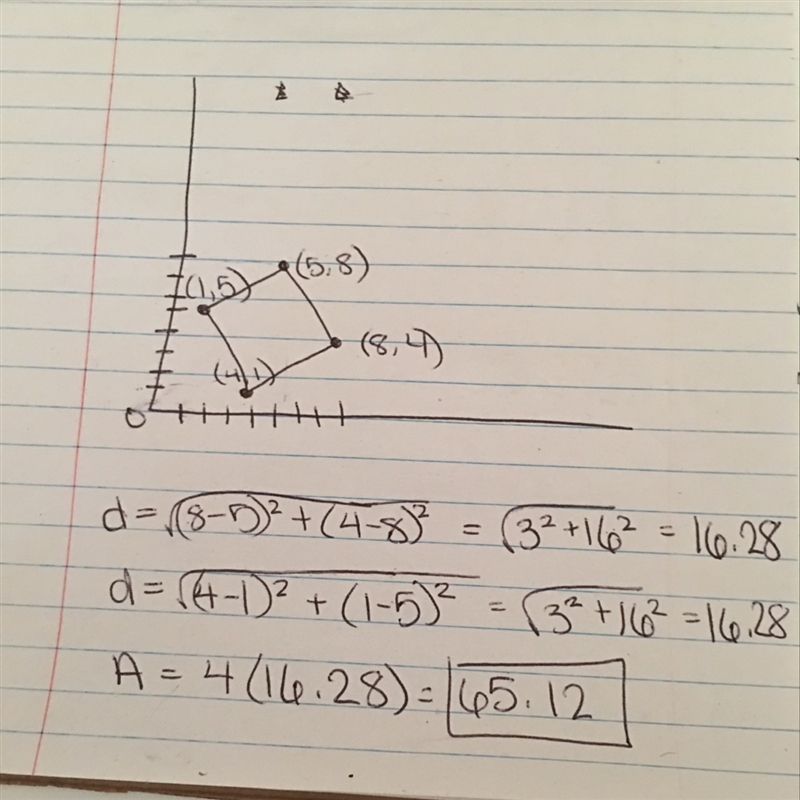 (5,8)
(1,5)
(8,4)
(4,1)
0
d = √(8-5)² + (4-8)² = √3² + 16² = 16.28
d = √(4-1)² + (1-5)² = √3² + 16² = 16.28
A = 4(16.28) = 65.12